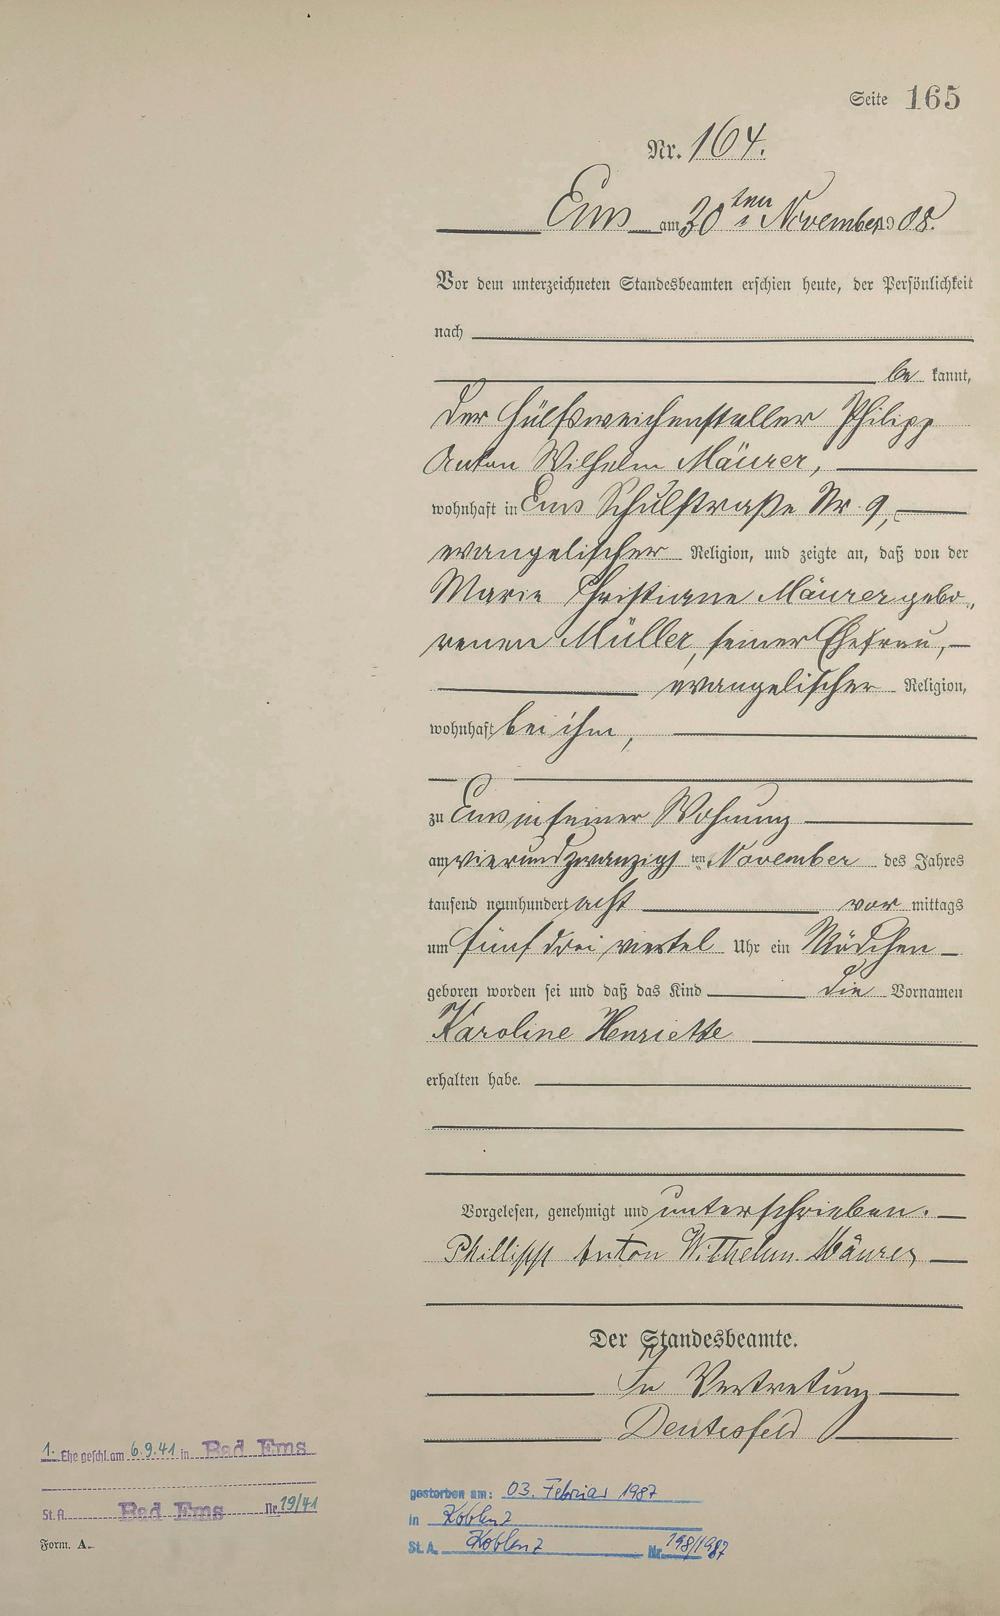 Seite 165
Nr. 164.
Ems am 30ten November 1908.
Vor dem unterzeichneten Standesbeamten erschien heute, der Persönlichkeit
nach
be kannt,
der Hülfsweichensteller Philipp
Anton Wilhelm Mäurer,
wohnhaft in Ems Schulstraße Nr. 9,
evangelischer Religion, und zeigte an, daß von der
Marie Christiane Mäurer gebo„
renen Müller, seiner Ehefrau,
evangelischer Religion,
wohnhaft bei ihm,
zu Ems in seiner Wohnung
am vierundzwanzigsten November des Jahres
tausend neunhundert acht vor mittags
um fünf drei viertel Uhr ein Mädchen
geboren worden sei und daß das Kind die Vornamen
Karoline Henriette
erhalten habe.
Vorgelesen, genehmigt und unterschrieben.
Phillipp Anton Wilhelm Mäurer
Der Standesbeamte.
In Vertretung
1. Ehe geschl. am 6.9.41 in Bad Ems
St. A. Bad Ems Nr. 19/41
Form. A.
gestorben am: 03. Februar 1987
in Koblenz
St. A. Koblenz Nr. 198/1987